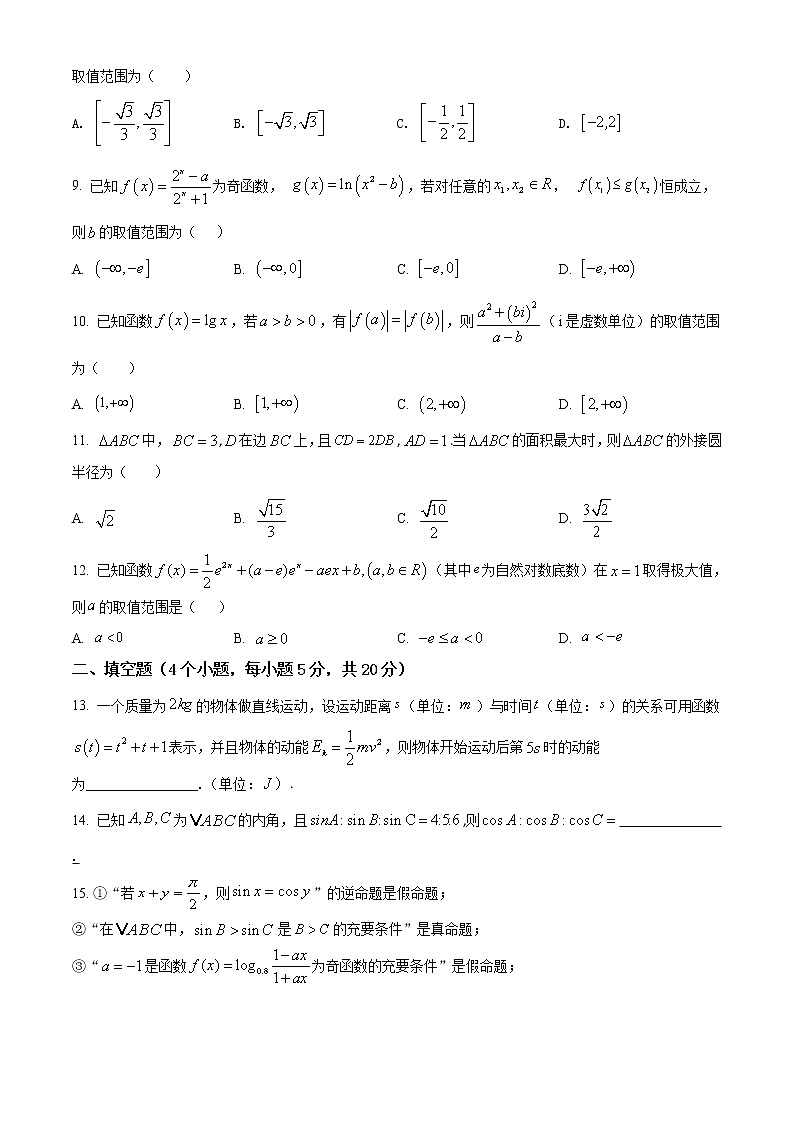 取值范围为（　　）
A. $\left[-\frac{\sqrt{3}}{3},\frac{\sqrt{3}}{3}\right]$ B. $\left[-\sqrt{3},\sqrt{3}\right]$ C. $\left[-\frac{1}{2},\frac{1}{2}\right]$ D. $[-2,2]$
9. 已知 $f(x)=\frac{2^x-a}{2^x+1}$ 为奇函数， $g(x)=\ln(x^2-b)$，若对任意的 $x_1,x_2\in R$， $f(x_1)\le g(x_2)$ 恒成立，
则 $b$ 的取值范围为（　）
A. $(-\infty,-e]$ B. $(-\infty,0]$ C. $[-e,0]$ D. $[-e,+\infty)$
10. 已知函数 $f(x)=\lg x$，若 $a>b>0$，有 $|f(a)|=|f(b)|$，则 $\frac{a^2+(bi)^2}{a-b}$（i 是虚数单位）的取值范围
为（　　）
A. $(1,+\infty)$ B. $[1,+\infty)$ C. $(2,+\infty)$ D. $[2,+\infty)$
11. $\Delta ABC$ 中，$BC=3$, $D$ 在边 $BC$ 上,且 $CD=2DB$, $AD=1$.当 $\Delta ABC$ 的面积最大时,则 $\Delta ABC$ 的外接圆
半径为（　　）
A. $\sqrt{2}$ B. $\frac{\sqrt{15}}{3}$ C. $\frac{\sqrt{10}}{2}$ D. $\frac{3\sqrt{2}}{2}$
12. 已知函数 $f(x)=\frac{1}{2}e^{2x}+(a-e)e^x-aex+b,(a,b\in R)$（其中 $e$ 为自然对数底数）在 $x=1$ 取得极大值，
则 $a$ 的取值范围是（　）
A. $a<0$ B. $a\ge 0$ C. $-e\le a<0$ D. $a<-e$
二、填空题（4 个小题，每小题 5 分，共 20 分）
13. 一个质量为 $2kg$ 的物体做直线运动，设运动距离 $s$（单位：$m$）与时间 $t$（单位：$s$）的关系可用函数
$s(t)=t^2+t+1$ 表示，并且物体的动能 $E_k=\frac{1}{2}mv^2$，则物体开始运动后第 $5s$ 时的动能
为________________.（单位：$J$）.
14. 已知 $A,B,C$ 为 V$ABC$ 的内角，且 $sinA:\sin B:\sin C=4:5:6$ ,则 $\cos A:\cos B:\cos C=$ ______________
.
15. ①“若 $x+y=\frac{\pi}{2}$，则 $\sin x=\cos y$”的逆命题是假命题；
②“在 V$ABC$ 中，$\sin B>\sin C$ 是 $B>C$ 的充要条件”是真命题；
③“$a=-1$ 是函数 $f(x)=\log_{0.8}\frac{1-ax}{1+ax}$ 为奇函数的充要条件”是假命题；